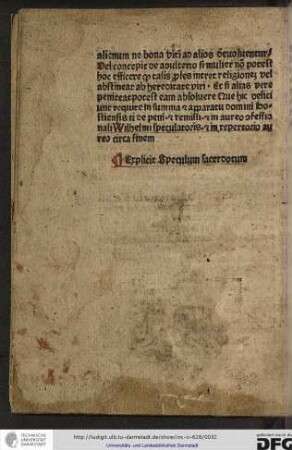 alienum ne bona viri ad alios deuoluentur
Vel concepit de adulterio si mulier nō potest
hoc efficere ꝙ talis ples intret religionē vel
abstineat ab hereditate viri · Et si alias vere
peniteat potest eam absoluere Que hic defici
unt require in summa ⁊ apparatu domini ho
stiensis ti de peni· ⁊ remissi· ⁊ in aureo ꝯfessio
nali Wilhelmi speculatoris· ⁊ in repertorio au
reo circa finem
¶ Explicit Speculum sacerdotum
TECHNISCHE
UNIVERSITÄT
DARMSTADT
http://tudigit.ulb.tu-darmstadt.de/show/inc-ii-628/0032
Universitäts- und Landesbibliothek Darmstadt
gefördert durch die
DFG